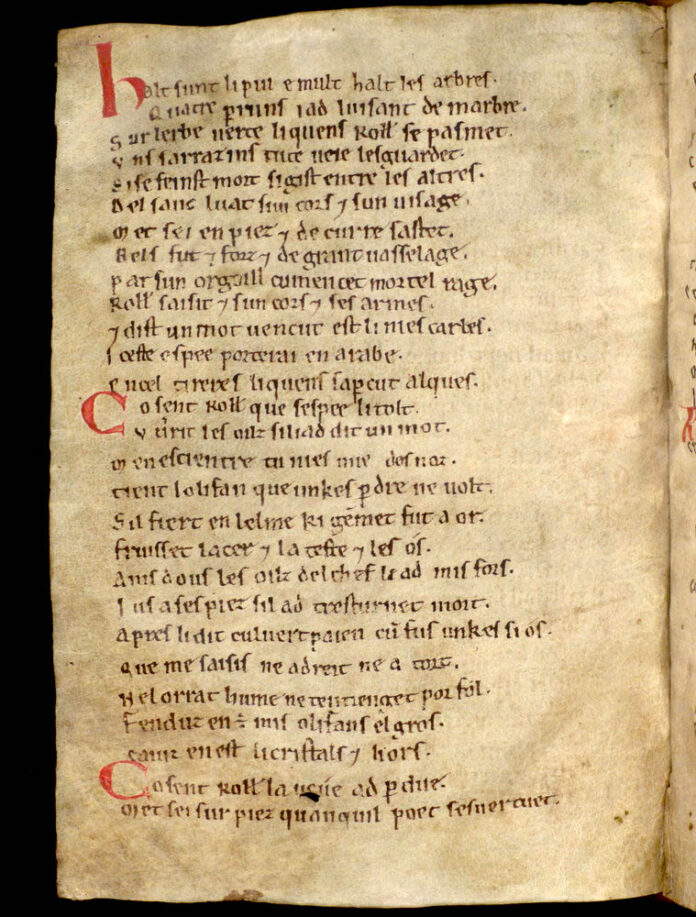 halt sunt li pui e mult halt les arbres.
Quatre perruns i ad luisant de marbre.
Sur lerbe uerte li quens Roll se pasmet.
Vns sarrazins tute ueie lesguardet.
Si se feinst mort si gist entre les altres.
Del sanc luat sun cors ⁊ sun uisage.
Met sei en piez ⁊ de curre sastet.
Bels fut ⁊ forz ⁊ de grant uasselage.
Par sun orguill cumencet mortel rage.
Roll saisit ⁊ sun cors ⁊ ses armes.
⁊ dist un mot uencut est li nies carles.
Iceste espee porterai en arabe.
En cel tireres li quens saperçut alques.
Co sent Roll que sespee li tolt.
Vurit les oilz si li ad dit un mot.
Men escientre tu nies mie des noz.
Tient lolifan que unkes perdre ne uolt.
Sil fiert en lelme ki gemet fut a or.
Fruisset lacer ⁊ la teste ⁊ les os.
Amsdous les oilz del chef li ad mis fors.
Ius a ses piez sil ad tresturnet mort.
Apres li dit culuert paien cum fus unkes si os.
Que me saisis ne a dreit ne a tort.
Nel orrat hume ne ten tienget por fol.
Fenduz en est mis olifans el gros.
Caiuz en est li cristals ⁊ li ors.
Co sent Roll la ueue ad perdue.
Met sei sur piez quanquil poet sesuertuet.